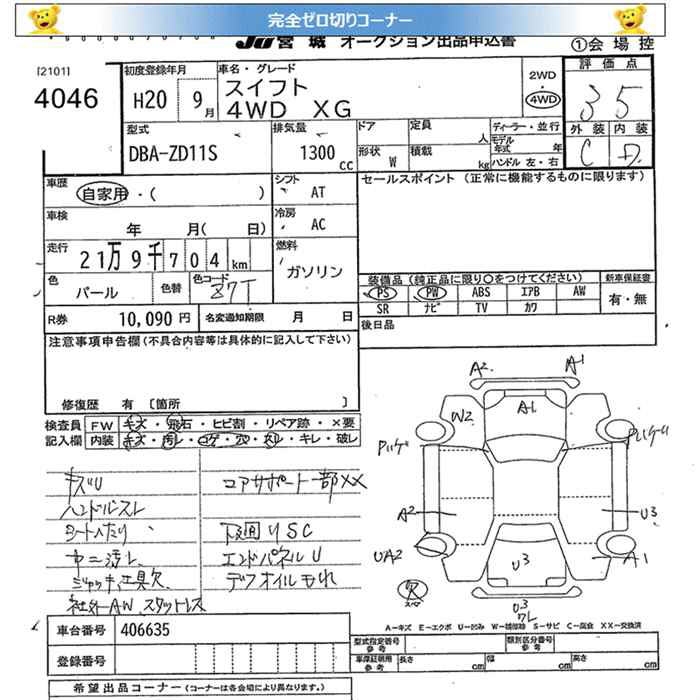 完全ゼロ切りコーナー
JU 宮城 オークション出品申込書 ①会場控
[2101]
4046
初度登録年月 H20 9月
車名・グレード スイフト
4WD XG
2WD
4WD
評価点 3 5
外装 内装
C D
型式 DBA-ZD11S
排気量 1300 cc
ドア 定員 人
形状 W 積載 kg
ディーラー・並行
モデル年式 年
ハンドル 左・右
車歴 自家用・( )
シフト AT
セールスポイント (正常に機能するものに限ります)
車検 年 月( 日)
冷房 AC
走行 21万9千704km
燃料 ガソリン
色 パール 色替 色コード Z7T
装備品 (純正品に限り○をつけてください) 新車保証書
PS PW ABS エアB AW 有・無
SR ナビ TV カワ
R券 10,090円 名変通知期限 月 日
後日品
注意事項申告欄(不具合内容等は具体的に記入して下さい)
修復歴 有 [箇所 ]
検査員 FW キズ・飛石・ヒビ割・リペア跡・×要
記入欄 内装 キズ・汚レ・コゲ・穴・スレ・キレ・破レ
キズU コアサポート一部XX
ハンドルスレ
シートヘたり 下廻りSC
ヤニ汚レ エンドパネルU
ジャッキ工具欠 デフオイルもれ
社外AW スタットレス
A2 A1
W2 A1
A2 U3
UA2 A1
U3
欠
U3
ワレ
A-キズ E-エクボ U-凹み W-補修跡 S-サビ C-腐食 XX-交換済
車台番号 406635
登録番号
型式指定番号 参考 類別区分番号 参考
車庫証明用 参考 長さ cm 幅 cm 高さ cm
希望出品コーナー (コーナーは各会場により異なります。)